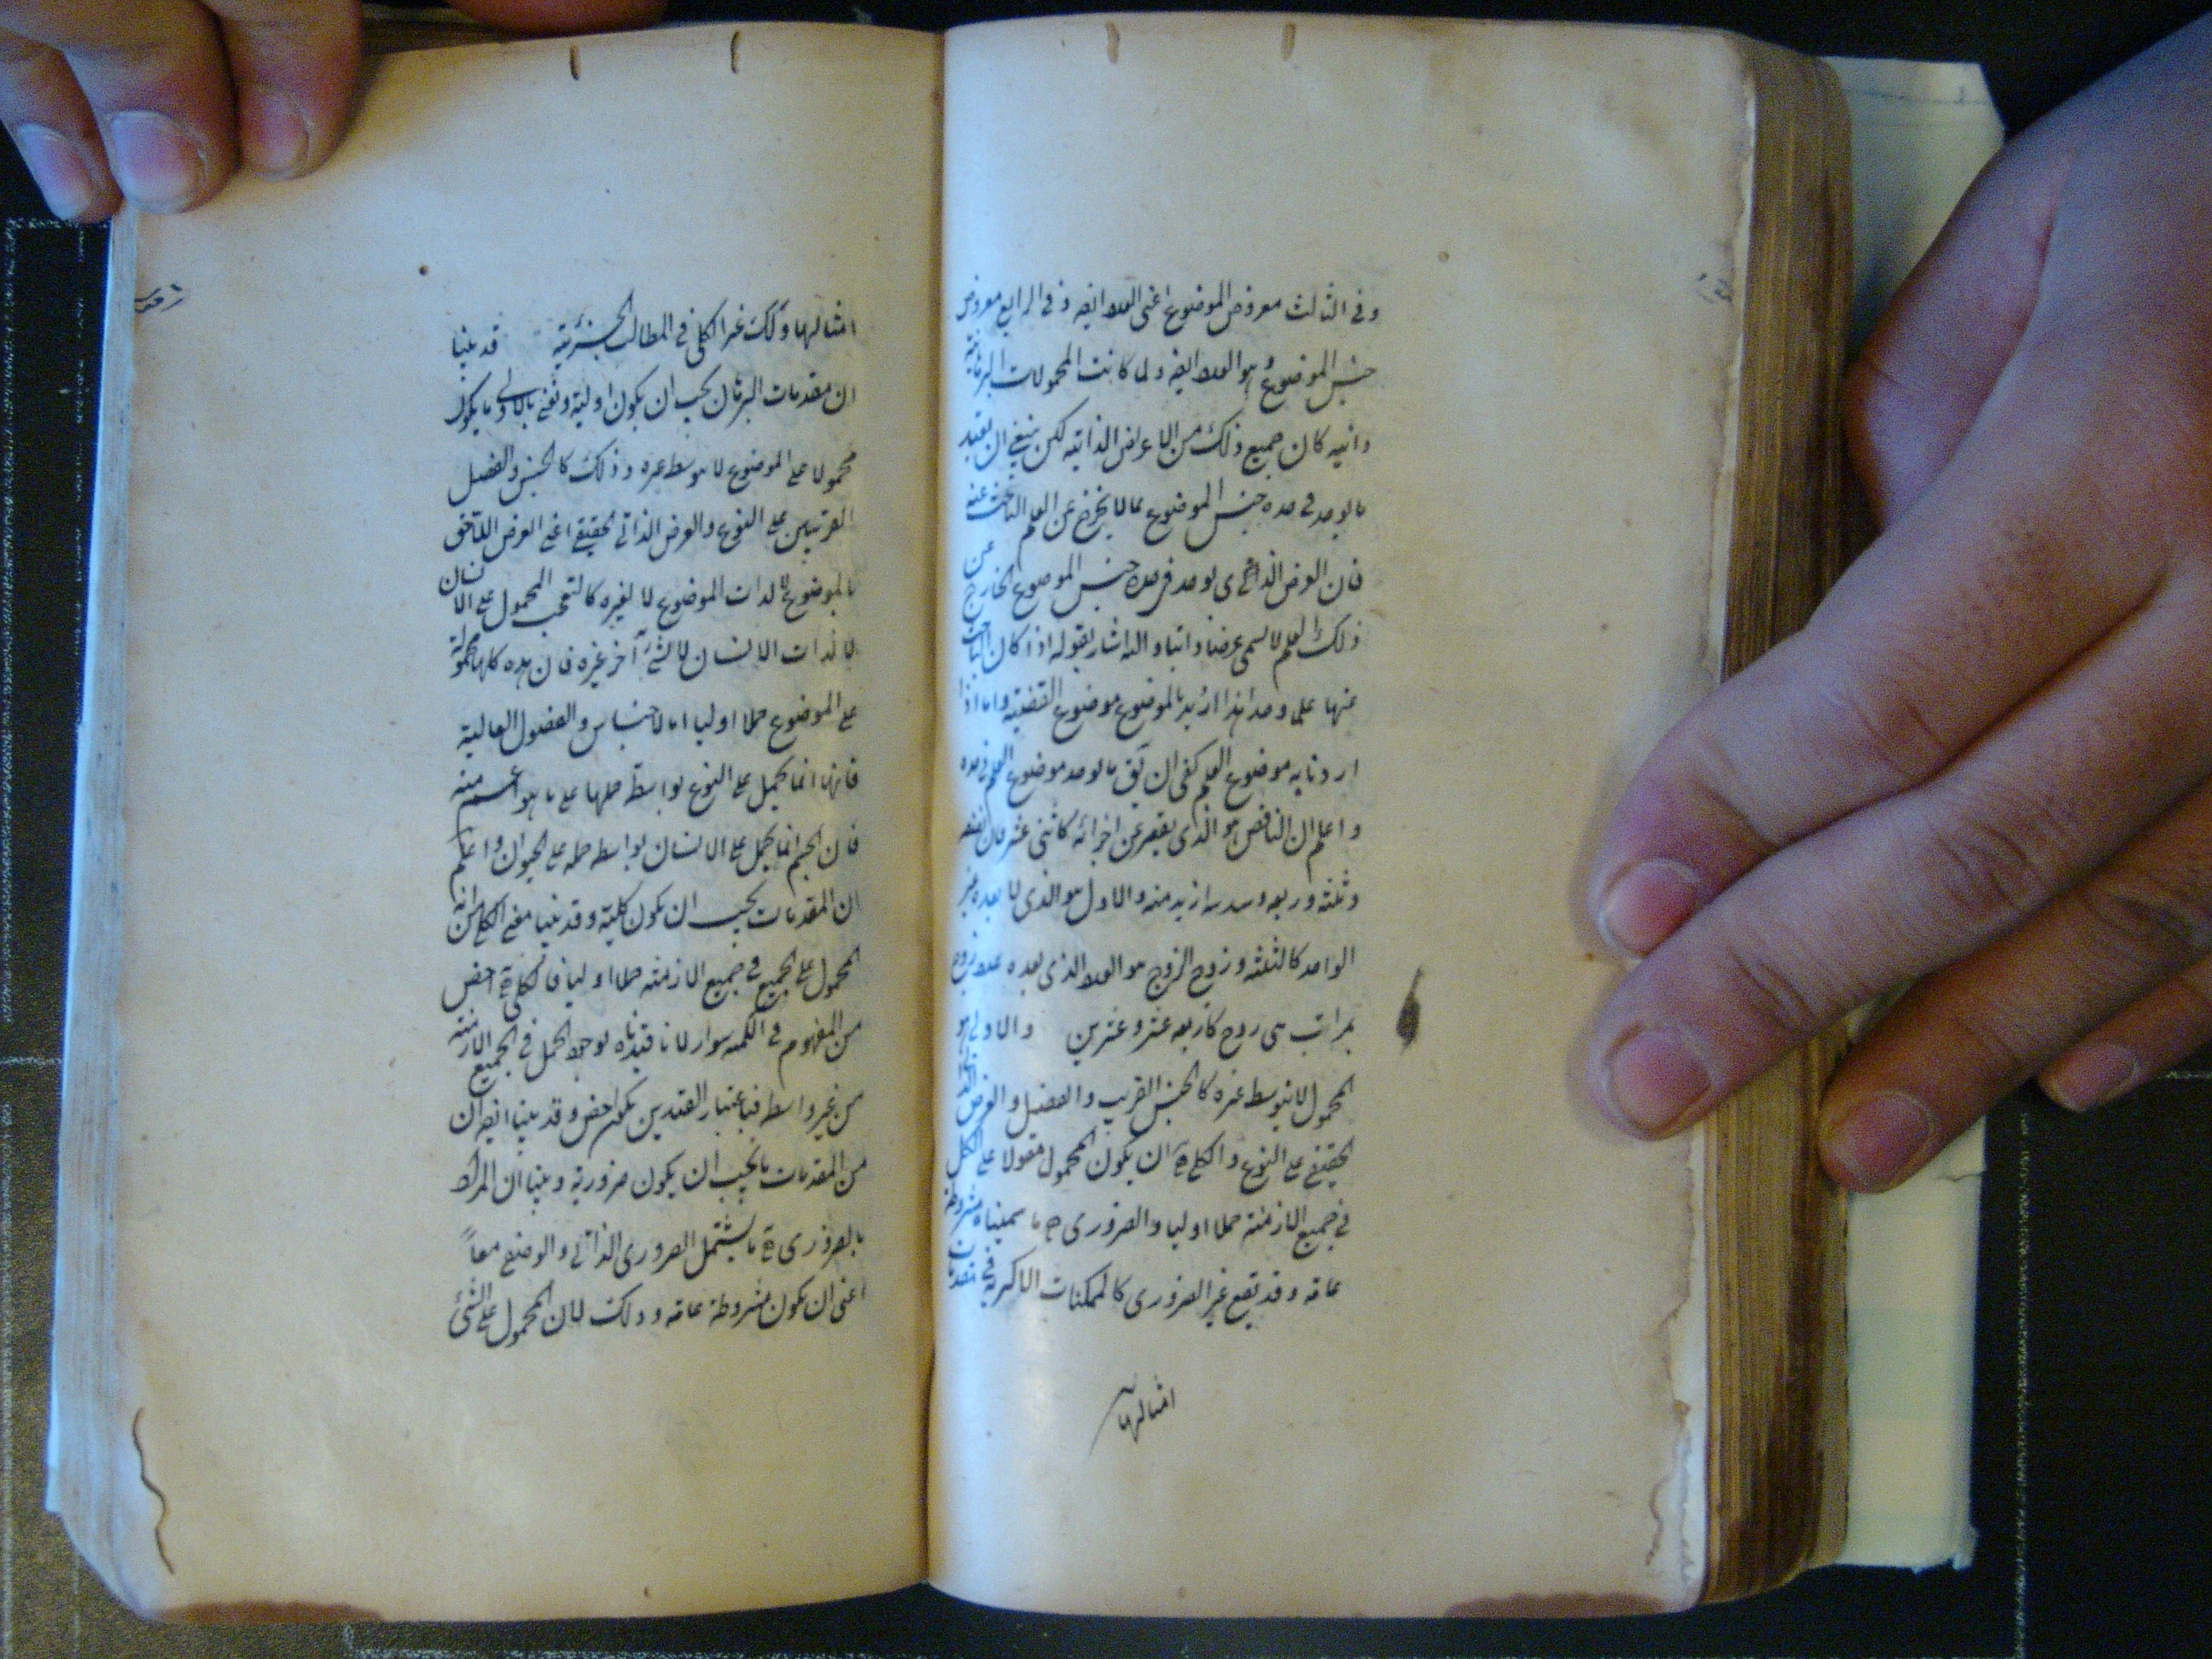 وفى الثالث معروض الموضوع اعنى العدد ايضه و فى الرابع معروض
جنس الموضوع و هو العدد ايضه و لما كانت المحمولات البرهانية
ذاتيه كان جميع ذلك من الاعراض الذاتيه لكن ينبغى ان يقيد
ما يوجد فى حده جنس الموضوع بما لا يخرج عن العلم الباحث عنه
فان العرض الذى يوجد فى حده جنس الموضوع الخارج عن
ذلك العلم لا يسمى عرضا ذاتيا و اليه اشار بقوله اذا كان الباحث
عنها علم واحد هذا اذا اريد بالموضوع موضوع القضية و اما اذا
اردنا به موضوع العلم كفى ان يق ما يوجد موضوع العلم فى حده
و اعلم ان الناقص هو الذى يقصر عن اجزائه كاثنى عشر فان نصفه
و ثلثه و ربعه و سدسه ازيد منه و الاول هو الذى لا يعده غير
الواحد كالثلثه و زوج الزوج هو العدد الذى يعده عدد زوج
بمراتب هى زوج كاربعه عشر و عشرين و الاولى هو
المحمول لا بتوسط غيره كالجنس القريب و الفصل و العرض الذاتى
الحقيقى على النوع و الكلى ان يكون المحمول مقولا على الكل
فى جميع الازمنة حملا اوليا و الضرورى ما سميناه مشروطه
عامه و قد يقع غير الضرورى كالممكنات الاكثرية فى مقدمات
امثالها
امثالها و كك غير الكلى فى المطالب الجزئية قد بينا
ان مقدمات البرهان يجب ان يكون اولية و نعنى بالاولى ما يكون
محمولا على الموضوع لا بوسط غيره و ذلك كالجنس و الفصل
القريبين على النوع و العرض الذاتى الحقيقى اعنى العرض اللاحق
بالموضوع لذات الموضوع لا لغيره كالتعجب المحمول على الانسان
لا لذات الانسان لا لشئ آخر غيره فان هذه كلها محمولة
على الموضوع حملا اوليا اما الاجناس و الفصول العالية
فانها انما تحمل على النوع بواسطة حملها على ما هو اعم منه
فان الجسم انما يحمل على الانسان بواسطه حمله على الحيوان و اعلم
ان المقدمات يجب ان يكون كلية و قد بينا معنى الكلى من انه
المحمول على الجميع فى جميع الازمنه حملا اوليا فالكلى اخص
من المفهوم فى سوار لانا قيدناه بوجود الحمل فى جميع الازمنه
من غير واسطه فباعتبار القيدين يكون اخص و قد بينا ايضه ان
من المقدمات ما يجب ان يكون ضرورية و بينا ان المراد
بالضرورى ما يشتمل الضرورى الذاتى و الوصفى معاً
اعنى ان يكون مشروطة عامه و ذلك لان المحمول على الشئ